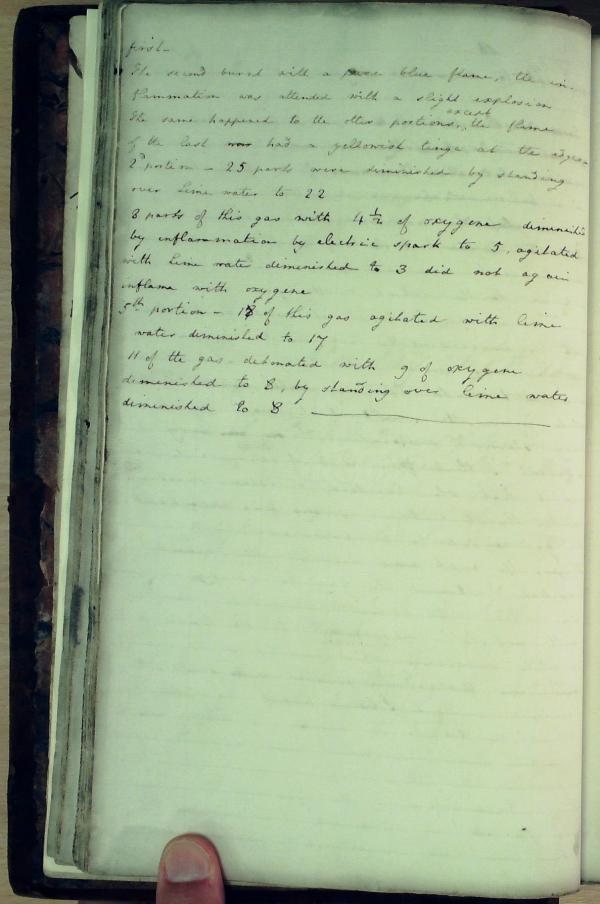 first-
The second burnd with a blue flame, the in-
flammation was attended with a slight explosion
The same happened to the other portions, except the flame
of the last had a yellowish tinge at the edges-
2d portion - 25 parts were diminished by standing
over lime water to 22
8 parts of this gas with 4 1/2 of oxygene diminish
by inflammation by electric spark to 5, agitated
with lime water diminished to 3 did not again
inflame with oxygene
5th portion - 18 of this gas agitated with lime
water diminished to 17
11 of the gas detonated with 9 of oxygene
diminished to 8, by standing over lime water
diminished to 8